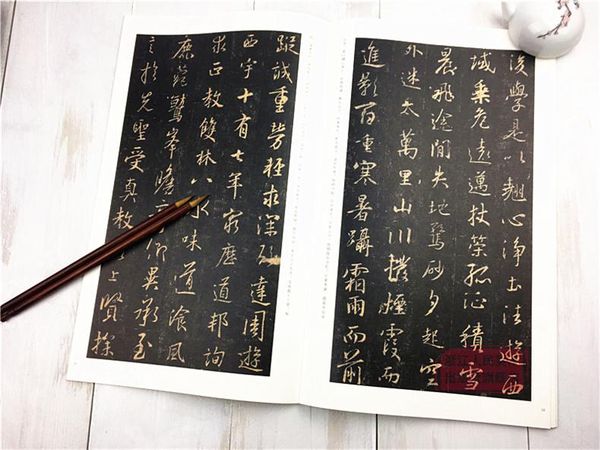 後學是以翹心淨土往遊西
域乘危遠邁杖策孤征積雪
晨飛途閒失地驚砂夕起空
外迷天萬里山川撥煙霞而
進影百重寒暑躡霜雨而前
蹤誠重勞輕求深願達周遊
西宇十有七年窮歷道邦詢
求正教雙林八水味道飡風
鹿菀鷲峯瞻仰異承至
言於先聖受真教上賢探